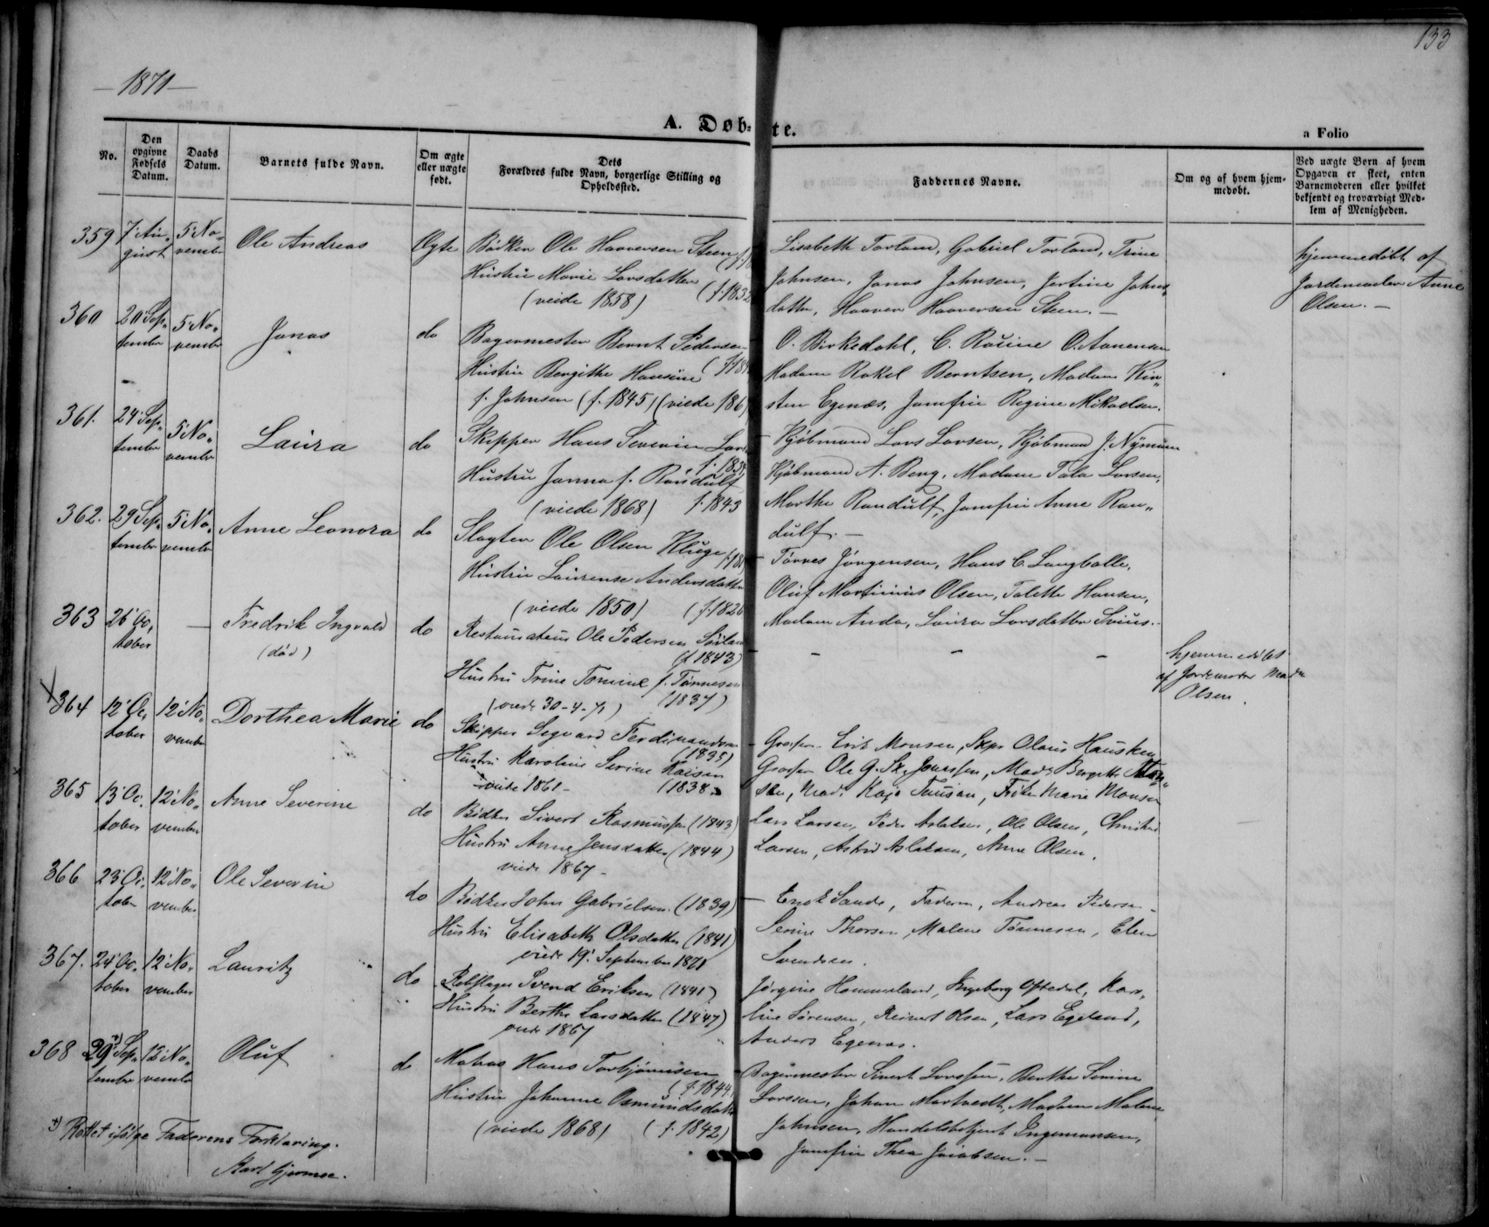 133
-1871-
A. Døbte.
a Folio
No.
Den opgivne Fødsels Datum.
Daabs Datum.
Barnets fulde Navn.
Om ægte eller uægte født.
Dets Forældres fulde Navn, borgerlige Stilling og Opholdssted.
Faddernes Navne.
Om og af hvem hjemmedøbt.
Ved uægte Børn af hvem Opgaven er skeet, enten Barnemoderen eller hvilket bekjendt og troværdigt Medlem af Menigheden.
359 7 August 5 November Ole Andreas Ægte Bødker Ole Haaversen Steen
Hustru Marie Larsdatter (f. 1832
(viede 1858)
Lisabeth Torland, Gabriel Torland, Trine
Johnsen, Jonas Johnsen, Jertine Johns
datter, Haaver Haaversen Steen. —
hjemmedøbt af
Jordemoder Anne
Olsen. —
360 20 September 5 November Jonas do Bagermester Bernt Pedersen
Hustru Bengitte Hansine
f. Johnsen (f. 1845) (viede 186
O. Birkedahl, C. Racine O. Aanensen
Madam Rakel Berntsen, Madam Kir„
sten Egenæs, Jomfru Regine Mikaelsen.
361. 24 September 5 November Laura do Skipper Hans Severin Lar
Hustru Janna f. Randulf
(viede 1868) f. 1843
Kjøbmand Lars Larsen, Kjøbmand J. Nyman
Kjøbmand A. Berg, Madam Tala Larsen,
Marthe Randulf, Jomfru Anne Ran„
dulf. —
362. 29 September 5 November Anne Leonora do Slagter Ole Olsen Kluge
Hustru Laurense Andersdatter
(viede 1850) (f. 1826
Tørres Jørgensen, Hans C. Langballe,
Oluf Martinius Olsen, Talette Hansen,
Madam Anda, Laura Larsdatter
363 26 October — Fredrik Ingvald do Restaurateur Ole Pedersen
(død) (f. 1843)
Hustru Trine Tomine f. Tønnesen
(viede 30-4-71) (1837)
hjemmedøbt
af Jordemoder Mad
Olsen.
364 12 October 12 November Dorthea Marie do Skipper Sigvard Ferdinandsen
(1835)
Hustru Karoline Serine Kaisen
viede 1861- (1838)
Grosser Erik Monsen, Skpr Olaus Hausken
Grosser Ole G. Sk. Joursen, Mad. Bergitte
365 13 October 12 November Anne Severine do Bødker Sivert Rasmussen (1843)
Hustru Anne Jensdatter (1844)
viede 1867-
Lars Larsen, Peder Aslaksen, Ole Olsen, Christine
Larsen, Astrid Aslaksen, Anne Olsen.
366 23 October 12 November Ole Severin do Bødker John Gabrielsen. (1839)
Hustru Elisabeth Olsdatter (1841)
viede 19. September 1871
Enok Sande, Faderen, Andreas Pedersen
Serine Thorsen, Malene Tønnesen, Elen
Svendsen.
367. 24 October 12 November Lauritz do Rebslager Svend Eriksen (1841)
Hustru Berthe Larsdatter (1847)
viede 1867
Jørgine Hommeland, Ingeborg Oftedal, Karo„
line Sørensen, Reinert Olsen, Lars Egeland,
Anders Egenæs.
368 29*) September 12 November Oluf do Matros Hans Torbjørnsen
(f. 1844
Hustru Johanne Osmundsdatter
(viede 1868) (f. 1842)
Bagermester Sivert Larssen, Berthe Serine
Larssen, Johan Martvedt, Madam Malene
Johnsen, Handelsbetjent Ingemansen,
Jomfru Thea Jacobsen. —
*) Rettet ifølge Faderens Forklaring.
Karl Gjermoe.